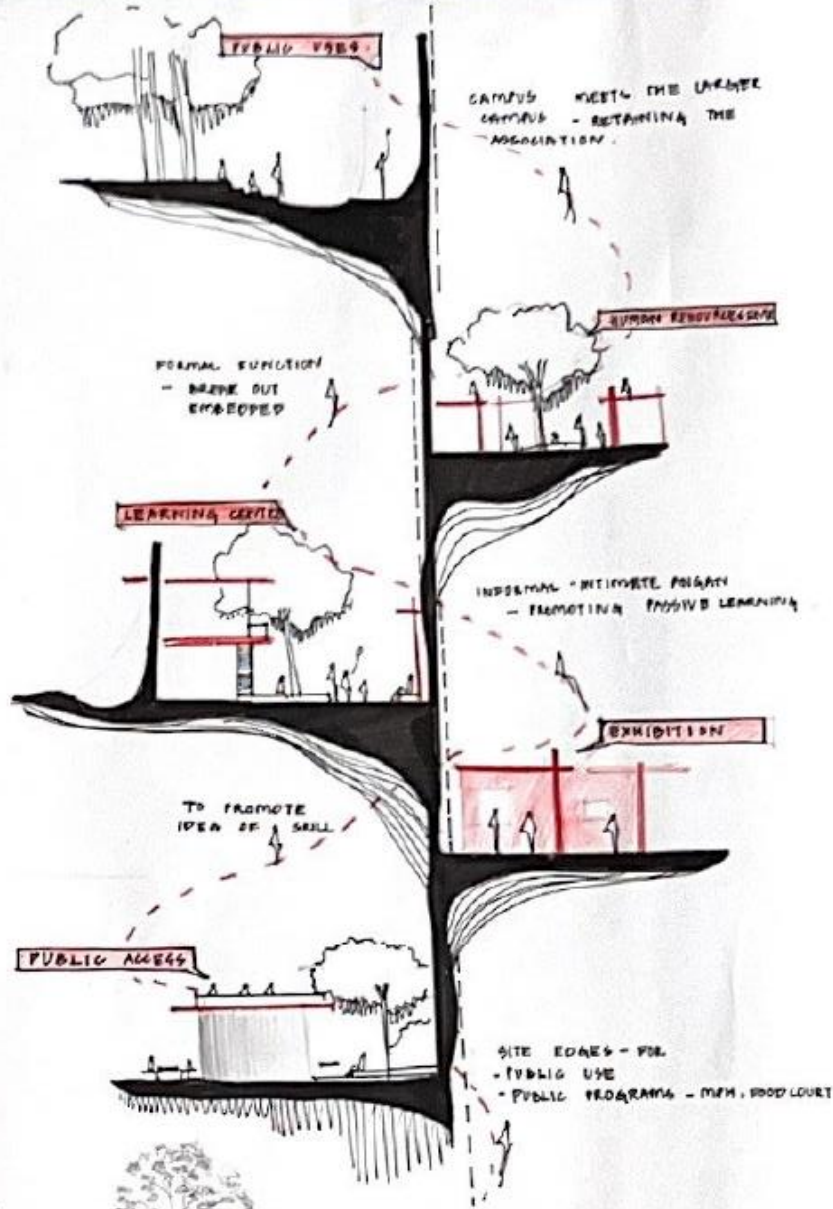 PUBLIC USES.
CAMPUS MEETS THE LARGER
CAMPUS - RETAINING THE
ASSOCIATION.
HUMAN
FORMAL FUNCTION
- BREAK OUT
EMBEDDED
LEARNING CENTER
INFORMAL - INTIMATE
- PROMOTING PASSIVE LEARNING
EXHIBITION
TO PROMOTE
IDEA OF SKILL
PUBLIC ACCESS
SITE EDGES - FOR
- PUBLIC USE
- PUBLIC PROGRAMS - MPH, FOOD COURT